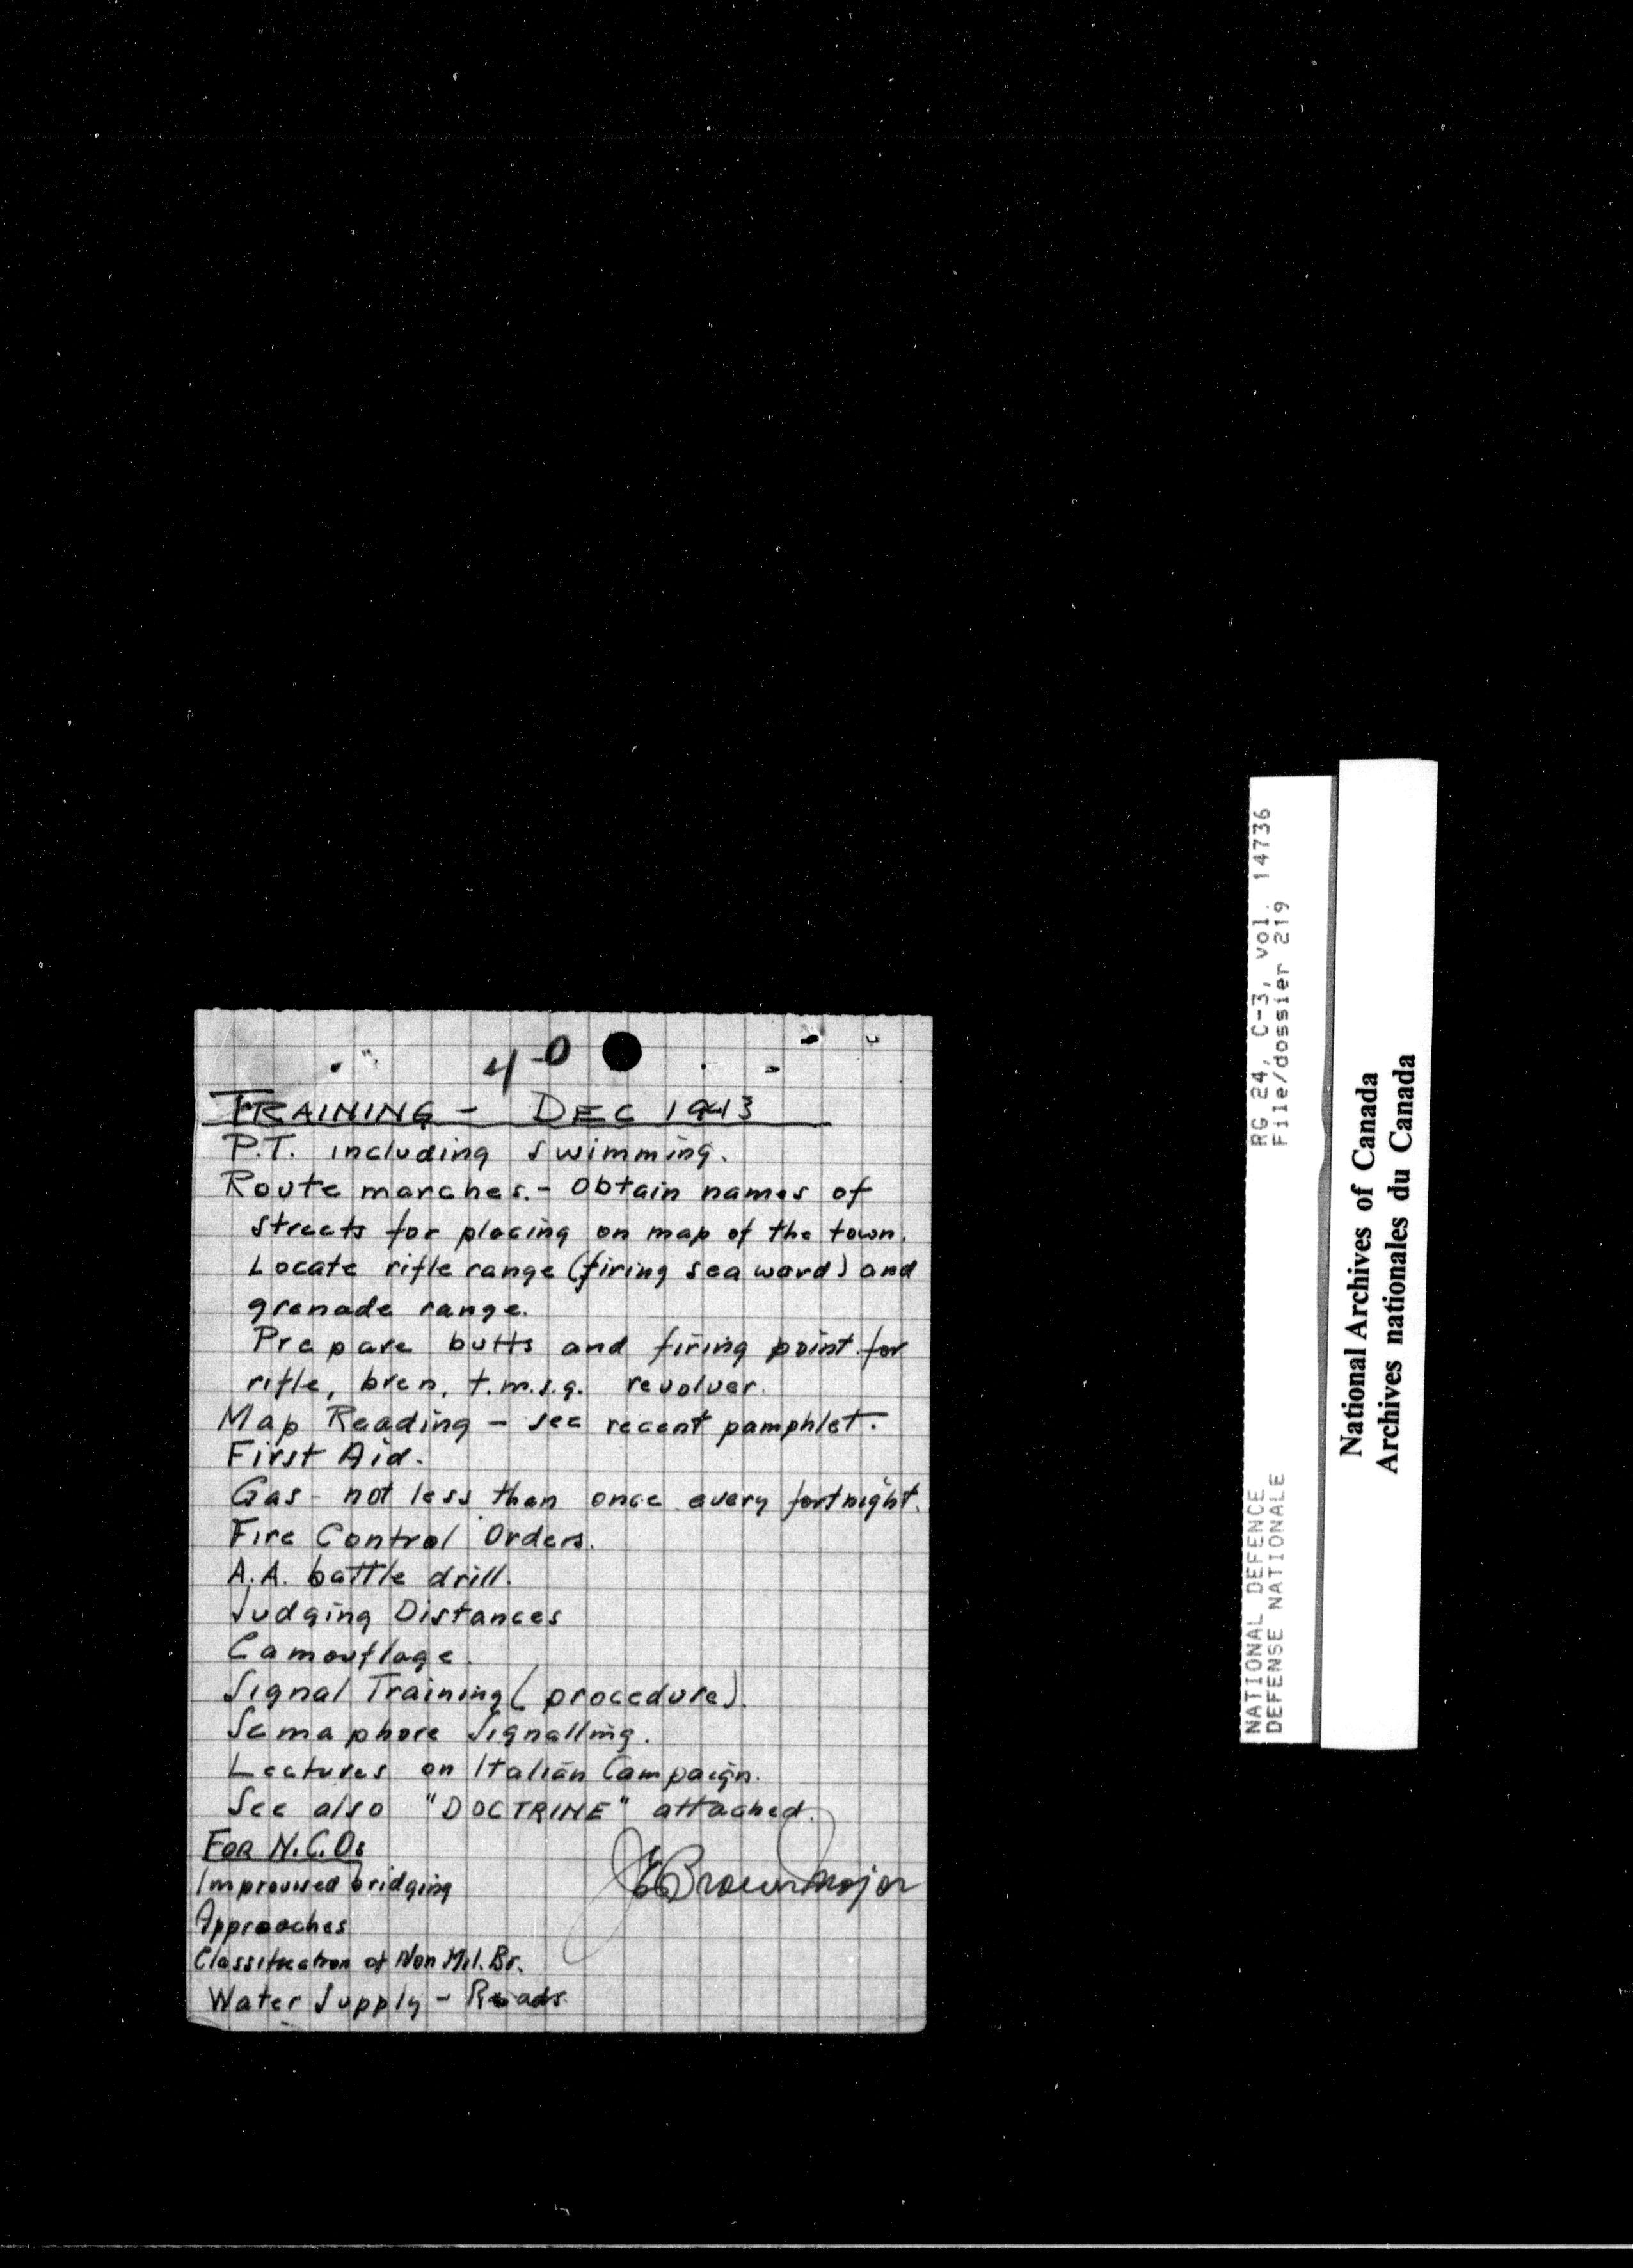 40
TRAINING - DEC 1943
P.T. including swimming.
Route marches. - Obtain names of
streets for placing on map of the town.
Locate rifle range (firing seaward) and
grenade range.
Prepare butts and firing point for
rifle, bren, t.m.s.g. revolver.
Map Reading - see recent pamphlet.
First Aid.
Gas - not less than once every fortnight.
Fire Control Orders.
A.A. battle drill.
Judging Distances
Camouflage.
Signal Training (procedure).
Semaphore Signalling.
Lectures on Italian Campaign.
See also "DOCTRINE" attached.
FOR N.C.Os
Improvised bridging
Brown Major
Approaches
Classification of Non Mil. Br.
Water Supply - Roads.
RG 24, C-3, vol. 14736
File/dossier 219
NATIONAL DEFENCE
DEFENSE NATIONALE
National Archives of Canada
Archives nationales du Canada